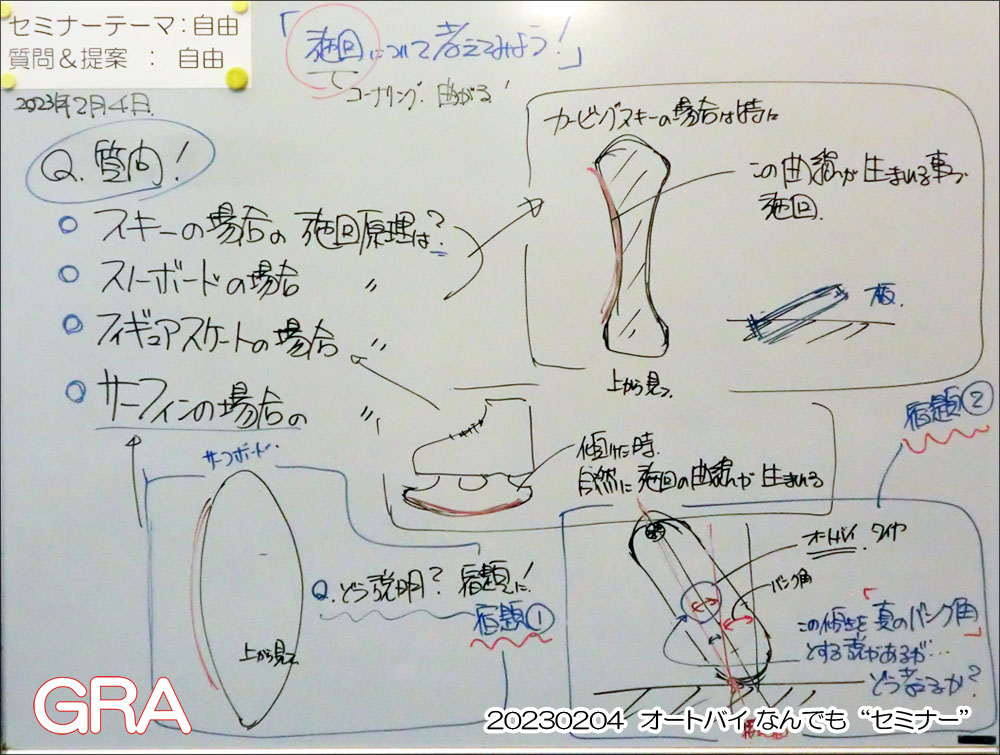 セミナーテーマ：自由
質問＆提案 ： 自由
2023年2月4日
「旋回について考えてみよう！」
コーナリング・曲がる！
Q. 質問！
スキーの場合の 旋回原理は？
スノーボードの場合 〃
フィギュアスケートの場合 〃
サーフィンの場合の 〃
カービングスキーの場合は特に
この曲線が生まれる事で
旋回.
板.
上から見て
傾けた時.
自然に旋回の曲線が生まれる
サーフボード.
上から見て
Q.どう説明？ 宿題に！
宿題①
宿題②
オートバイ タイヤ
バンク角
この傾きを「真のバンク角」
とする説があるが…
どう考えるか？
GRA
20230204 オートバイ なんでも “セミナー”